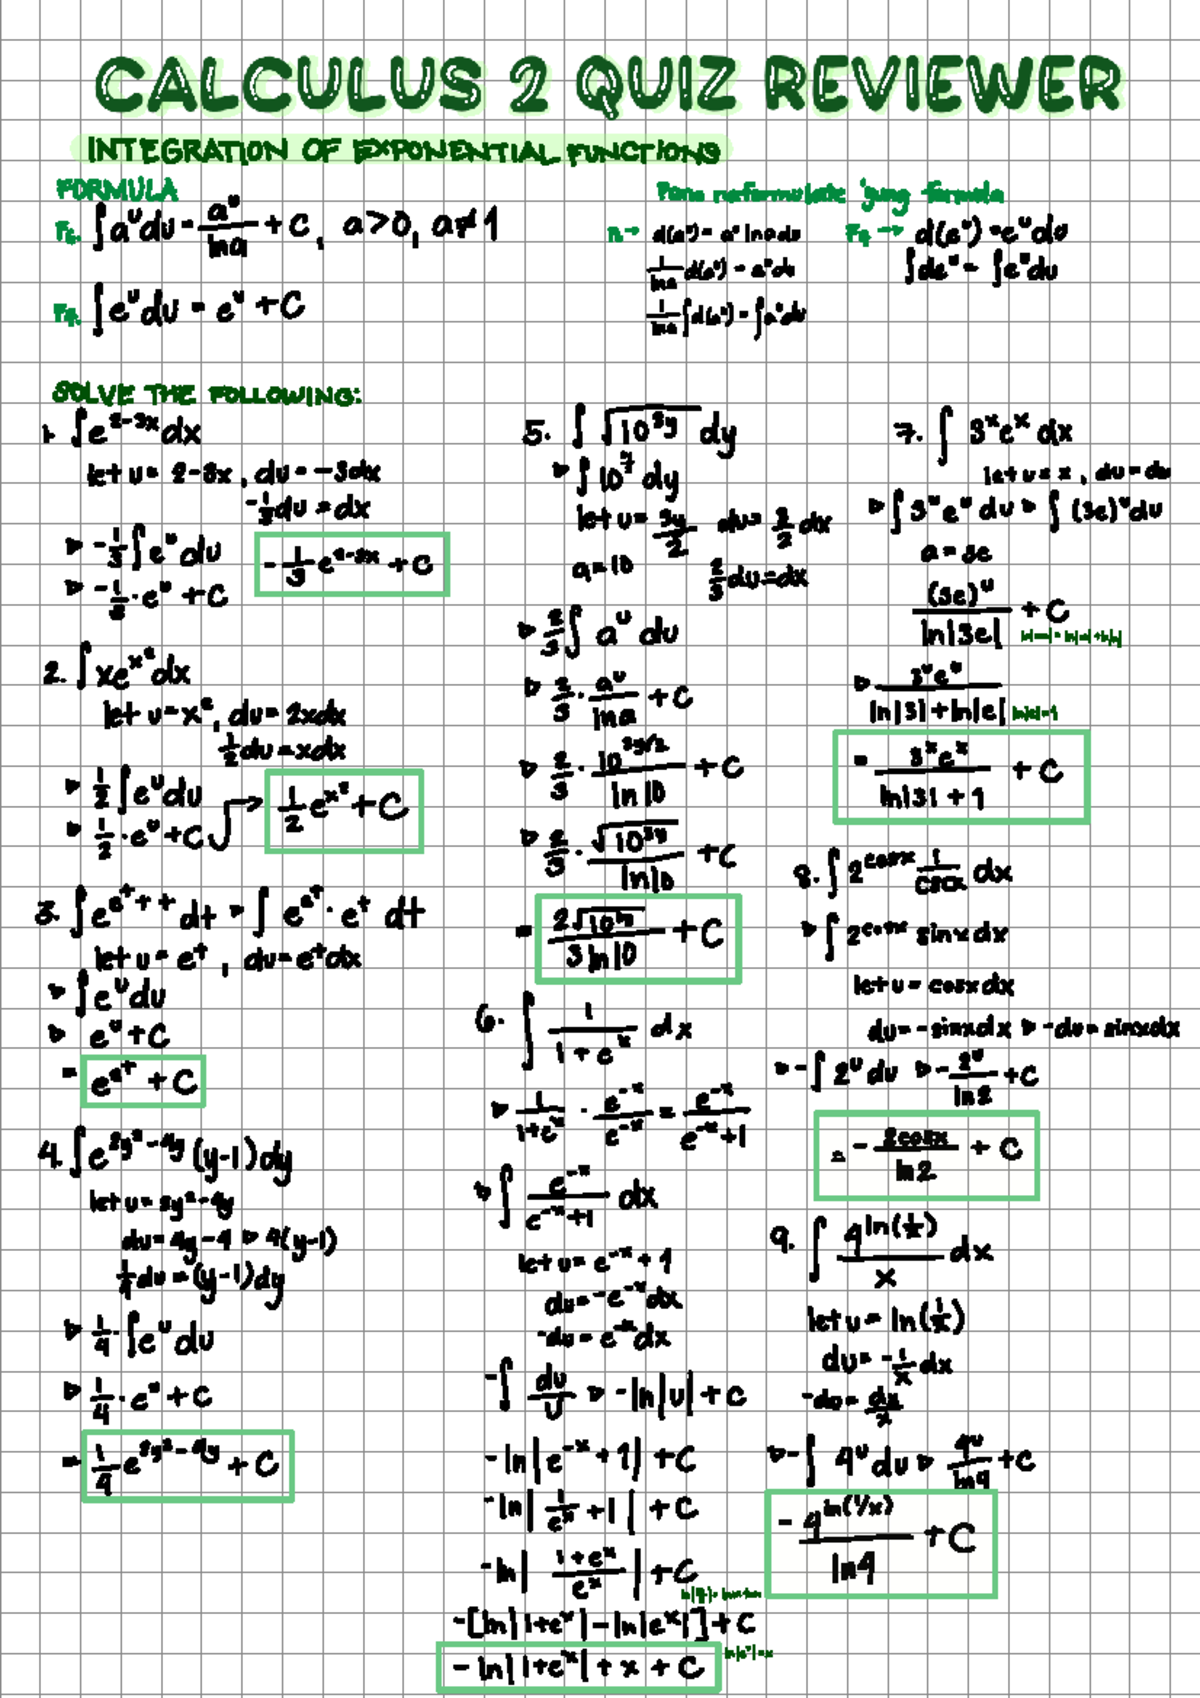 CALCULUS 2 QUIZ REVIEWER
INTEGRATION OF EXPONENTIAL FUNCTIONS
FORMULA
∫a^u du = a^u/ln a + C, a>0, a≠1
F9. ∫e^u du = e^u + C
Para mareformulate 'yung formula
d(a^u) = a^u ln a du
1/ln a d(a^u) = a^u du
1/ln a ∫d(a^u) = ∫a^u du
F9 → d(e^u) = e^u du
∫de^u = ∫e^u du
SOLVE THE FOLLOWING:
1. ∫e^(2-3x) dx
let u = 2-3x, du = -3dx
-1/3 du = dx
▷ -1/3 ∫e^u du
▷ -1/3 · e^u + C
-1/3 e^(2-3x) + C
2. ∫xe^(x^2) dx
let u = x^2, du = 2xdx
1/2 du = xdx
▷ 1/2 ∫e^u du
▷ 1/2 · e^u + C →
1/2 e^(x^2) + C
3. ∫e^(e^t + t) dt = ∫e^(e^t) · e^t dt
let u = e^t, du = e^t dx
▷ ∫e^u du
▷ e^u + C
= e^(e^t) + C
4. ∫e^(2y^2-4y) (y-1) dy
let u = 2y^2-4y
du = 4y-4 ▷ 4(y-1)
1/4 du = (y-1)dy
▷ 1/4 · ∫e^u du
▷ 1/4 · e^u + C
= 1/4 e^(2y^2-4y) + C
5. ∫√(10^(3y)) dy
▷ ∫10^(3y/2) dy
let u = 3y/2 du = 3/2 dx
a = 10 2/3 du = dx
▷ 2/3 ∫a^u du
▷ 2/3 · a^u/ln a + C
▷ 2/3 · 10^(3y/2)/ln 10 + C
▷ 2/3 · √(10^(3y))/ln 10 + C
= 2√(10^(3y))/3 ln 10 + C
6. ∫ 1/(1+e^x) dx
▷ 1/(1+e^x) · e^-x/e^-x = e^-x/(e^-x+1)
▷ ∫ e^-x/(e^-x+1) dx
let u = e^-x + 1
du = -e^-x dx
-du = e^-x dx
-∫ du/u ▷ -ln|u| + C
-ln|e^-x + 1| + C
-ln|1/e^x + 1| + C
-ln|(1+e^x)/e^x| + C
-[ln|1+e^x| - ln|e^x|] + C
-ln|1+e^x| + x + C
ln|e^x| = x
7. ∫ 3^x e^x dx
let u = x, du = dx
▷ ∫3^u e^u du ▷ ∫(3e)^u du
a = 3e
(3e)^u/ln|3e| + C
▷ 3^u e^u/(ln|3| + ln|e|) ln|e|=1
= 3^x e^x/(ln|3| + 1) + C
8. ∫2^(cosx) 1/cscx dx
▷ ∫2^(cosx) sinx dx
let u = cosx dx
du = -sinx dx ▷ -du = sinx dx
▷ -∫2^u du ▷ -2^u/ln 2 + C
= -2^cosx/ln 2 + C
9. ∫ 4^(ln(1/x))/x dx
let u = ln(1/x)
du = -1/x dx
-du = dx/x
▷ -∫4^u du ▷ 4^u/ln 4 + C
-4^(ln(1/x))/ln 4 + C